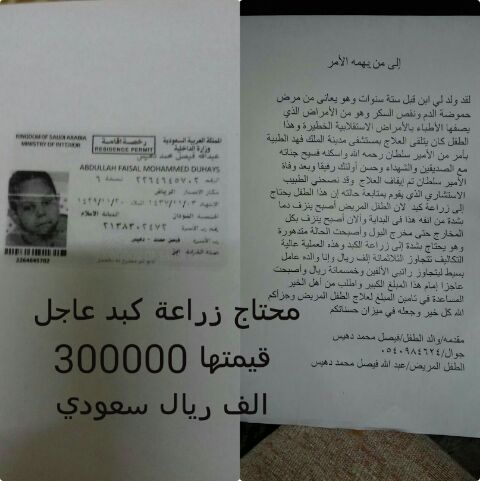 KINGDOM OF SAUDI ARABIA
MINISTRY OF INTERIOR
المملكة العربية السعودية
وزارة الداخلية
رخصة إقامة
RESIDENCE PERMIT
عبدالله فيصل محمد دهيس
ABDULLAH FAISAL MOHAMMED DUHAYS
٢٢٦٤٦٤٥٧٠٢
مكان الإصدار الرياض
١٤٣٧/١١/٠٣
١٤٢٩/١١/٢٠
الجنسية السودان
الديانة الاسلام
٢١٣٨٣٠٢٤٧٢
فيصل محمد دهيس
2264645702
محتاج زراعة كبد عاجل
قيمتها 300000
الف ريال سعودي
إلى من يهمه الأمر
لقد ولد لي ابن قبل ستة سنوات وهو يعاني من مرض
حموضة الدم ونقص السكر وهو من الأمراض التي
يصفها الأطباء بالأمراض الاستقلابية الخطيرة وهذا
الطفل كان يتلقى العلاج بمستشفى مدينة الملك فهد الطبية
بأمر من الأمير سلطان رحمه الله واسكنه فسيح جناته
مع الصديقين والشهداء وحسن أولئك رفيقا وبعد وفاة
الأمير سلطان تم إيقاف العلاج وقد نصحني الطبيب
الاستشاري الذي يقوم بمتابعة حالته إن هذا الطفل يحتاج
إلى زراعة كبد لان الطفل المريض أصبح ينزف دما
شدة من انفه هذا في البداية والآن أصبح ينزف بكل
المخارج حتى مخرج البول وأصبحت الحالة متدهورة
وهو يحتاج بشدة إلى زراعة الكبد وهذه العملية عالية
التكاليف تتجاوز الثلاثمائة ألف ريال وإنا والده عامل
بسيط لا يتجاوز راتبي الألفين وخمسمائة ريال وأصبحت
عاجزا إمام هذا المبلغ الكبير واطلب من أهل الخير
المساعدة في تامين المبلغ لعلاج الطفل المريض وجزأكم
الله كل خير وجعله في ميزان حسناتكم
مقدمه/والد الطفل/فيصل محمد دهيس
جوال/٠٥٤٠٩٨٤٦٢٤
الطفل المريض/عبد الله فيصل محمد دهيس